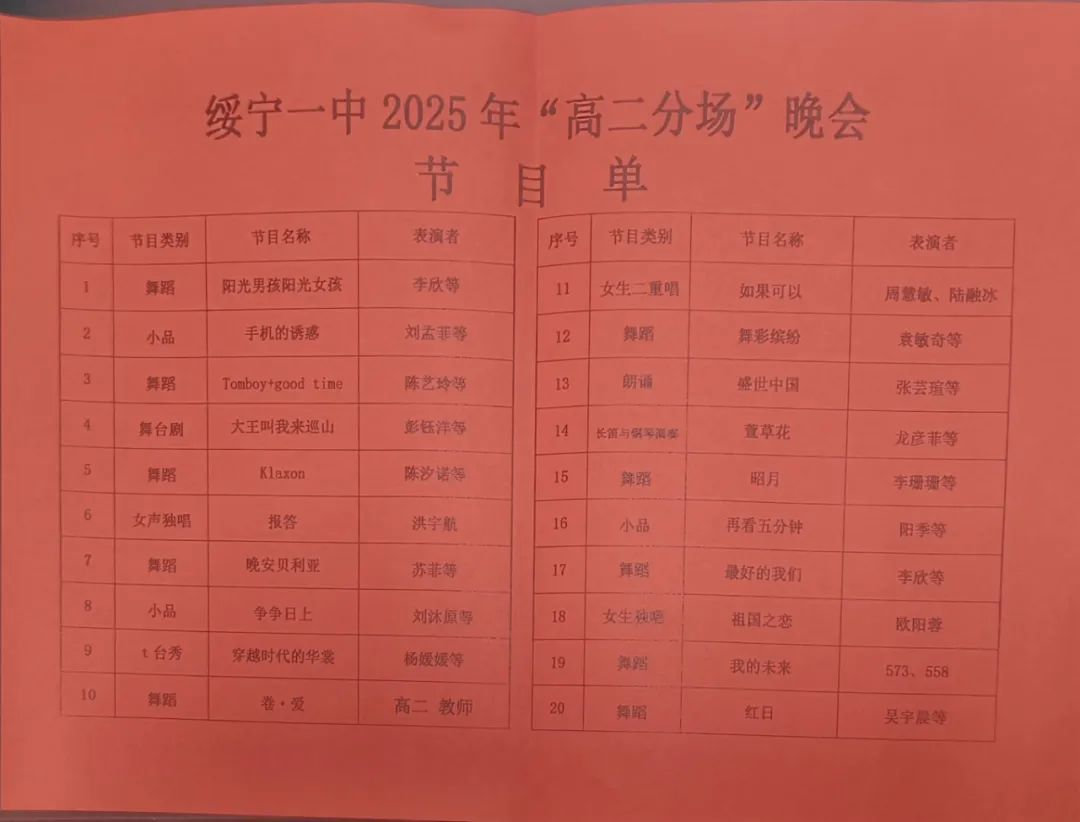 绥宁一中 2025 年“高二分场”晚会
节 目 单
序号 节目类别 节目名称 表演者
1 舞蹈 阳光男孩阳光女孩 李欣等
2 小品 手机的诱惑 刘孟菲等
3 舞蹈 Tomboy+good time 陈艺玲等
4 舞台剧 大王叫我来巡山 彭钰洋等
5 舞蹈 Klaxon 陈汐诺等
6 女声独唱 报答 洪宇航
7 舞蹈 晚安贝利亚 苏菲等
8 小品 争争日上 刘沐原等
9 t 台秀 穿越时代的华裳 杨媛媛等
10 舞蹈 卷·爱 高二 教师
序号 节目类别 节目名称 表演者
11 女生二重唱 如果可以 周慧敏、陆融冰
12 舞蹈 舞彩缤纷 袁敏奇等
13 朗诵 盛世中国 张芸瑄等
14 长笛与钢琴演奏 萱草花 龙彦菲等
15 舞蹈 昭月 李珊珊等
16 小品 再看五分钟 阳季等
17 舞蹈 最好的我们 李欣等
18 女生独唱 祖国之恋 欧阳蓉
19 舞蹈 我的未来 573、558
20 舞蹈 红日 吴宇晨等